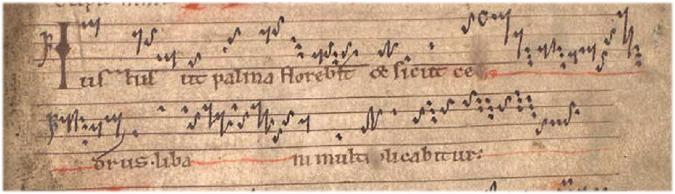 Ius tus ut palma florebit et sicut ce
drus liba ni multi plicabitur: